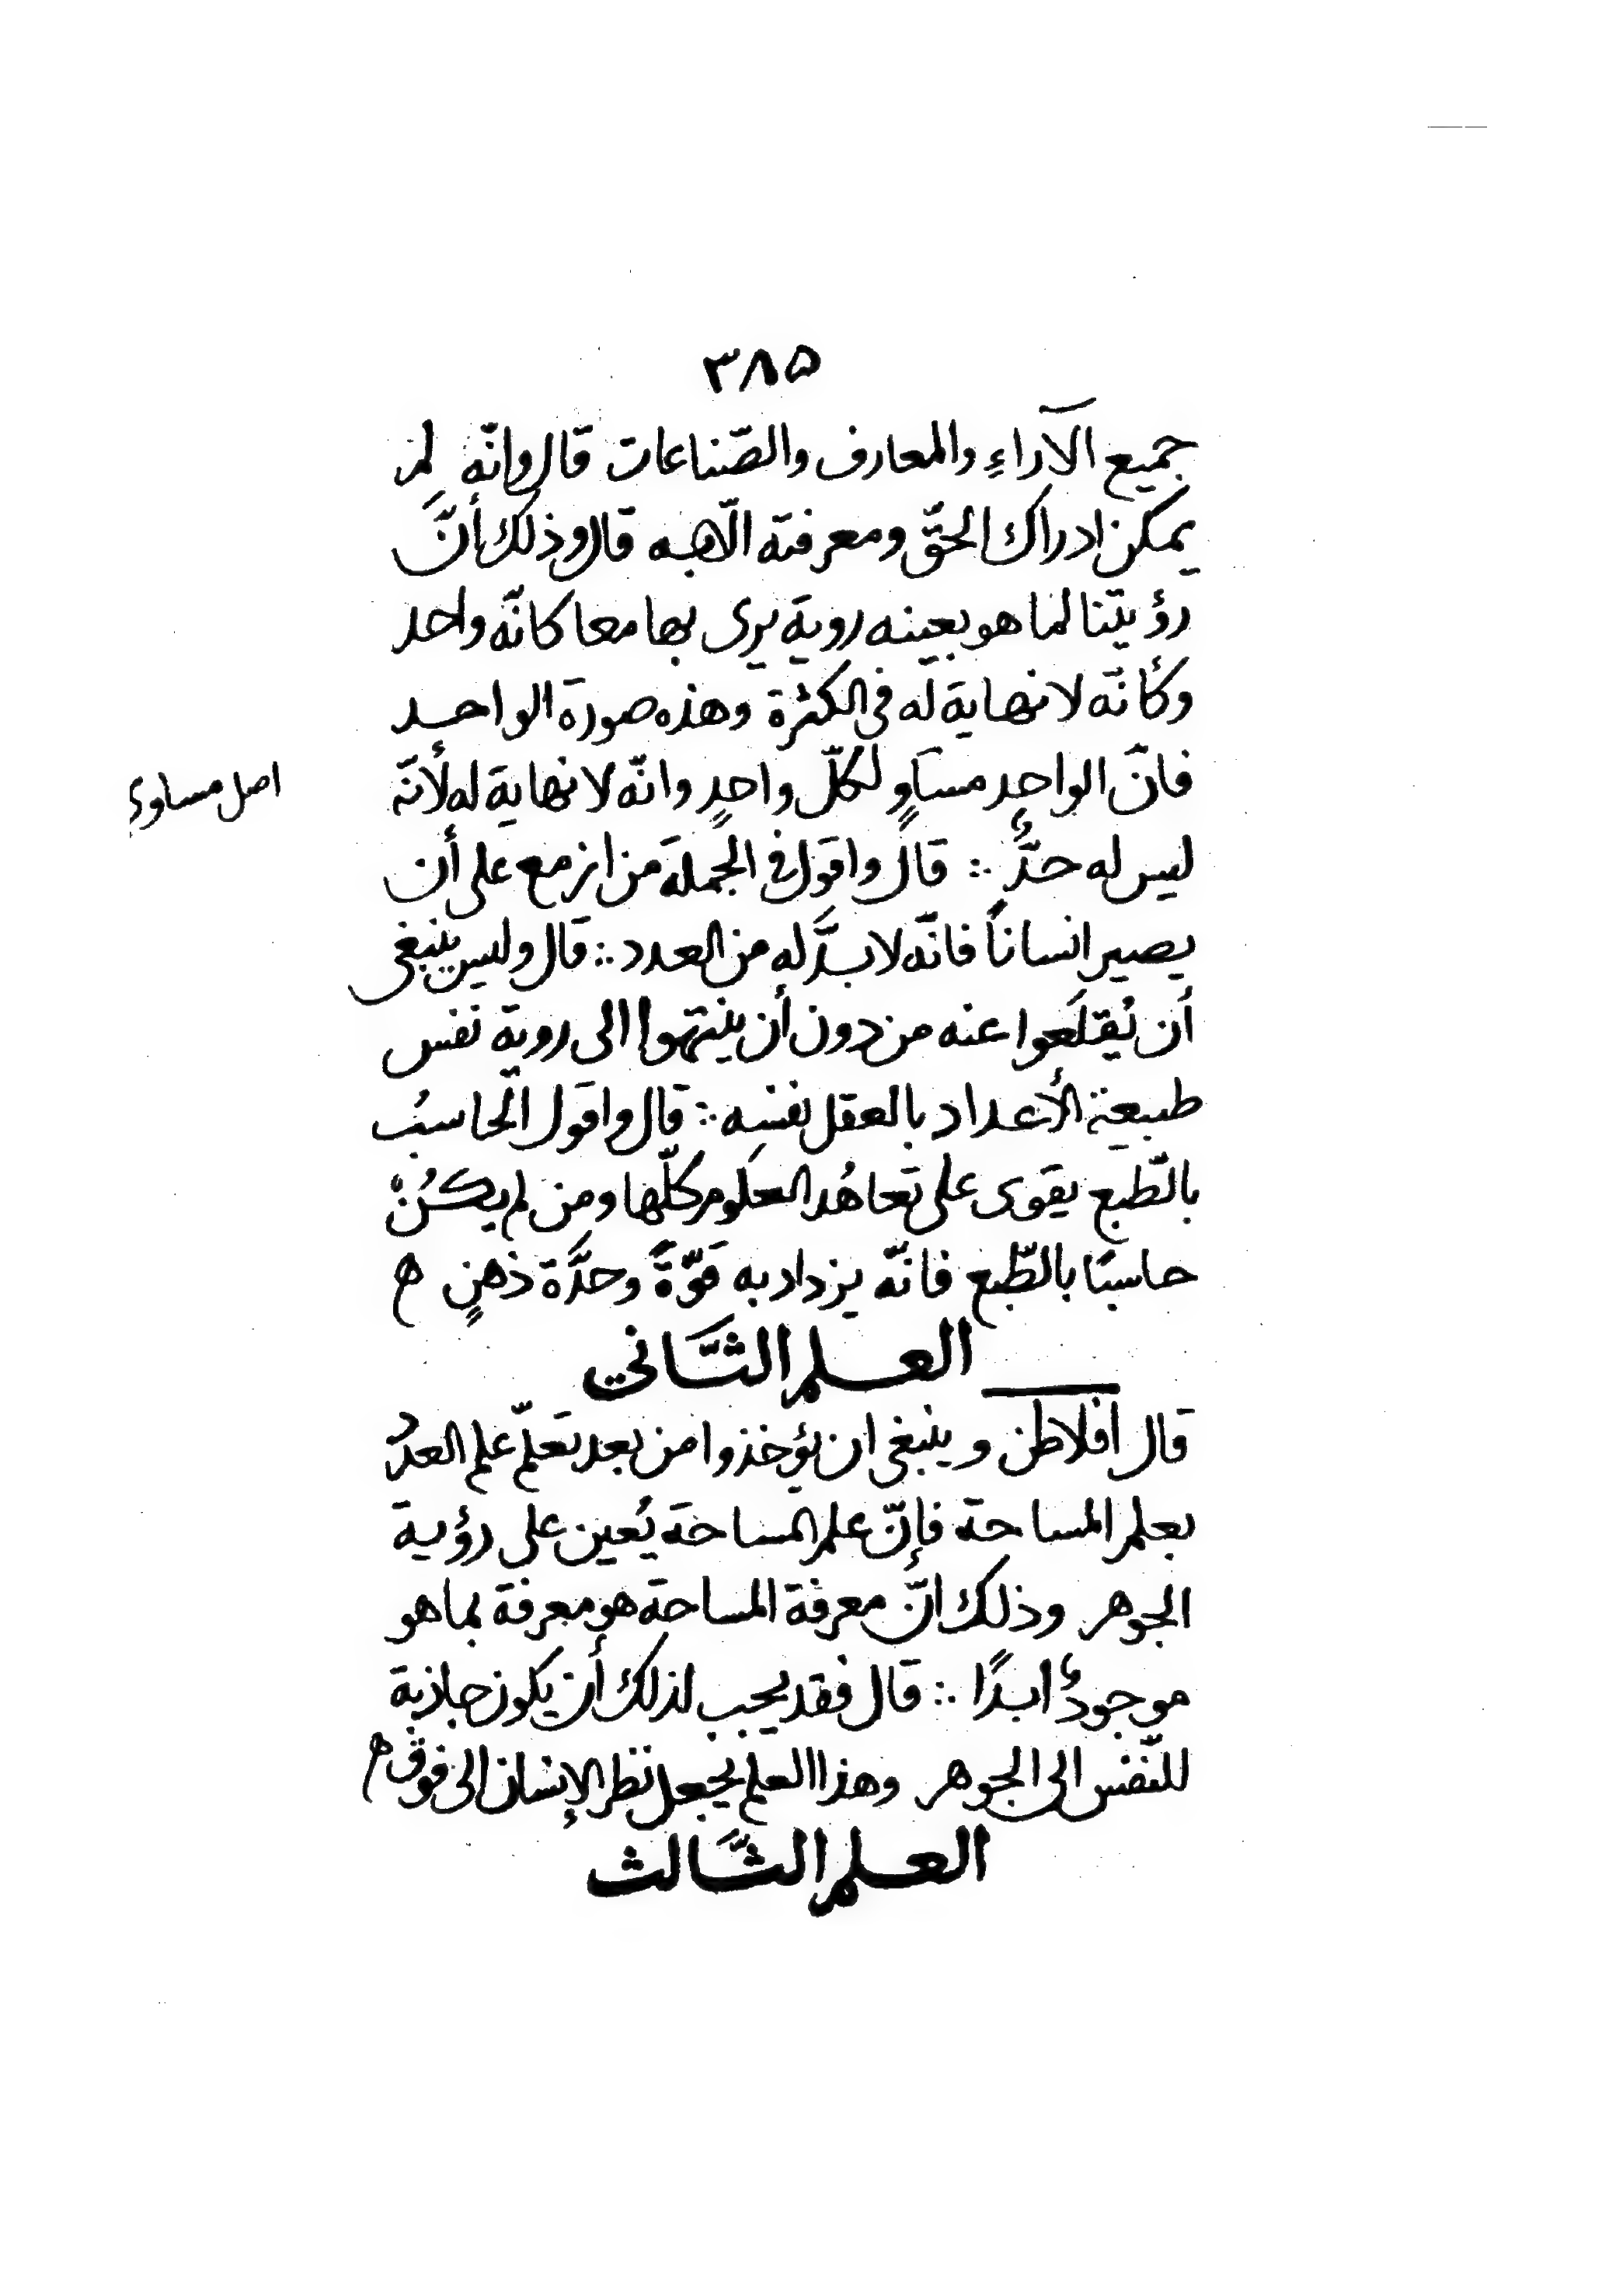 ٣٨۵
جميع الآراءِ والمعارف والصّناعات قال وانّه لم
يمكن ادراك الحقّ ومعرفته الّا به قال وذلك أنَّ
رؤيتنا لما هو بعينه روية يرى بها معا كانّه واحد
وكأنّه لا نهاية له فى الكثرة وهذه صورة الواحد
فانّ الواحد مساوٍ لكلّ واحدٍ وانّه لا نهاية له لأنّه
اصل مساوى
ليس له حدٌّ ∴ قال واقول فى الجملة من ازمع على أن
يصير انساناً فانّه لا بدَّ له من العدد ∴ قال وليس ينبغى
أن يُقلَعوا عنه من دون أن ينتهوا الى روية نفس
طبيعة الأعداد بالعقل نفسِه ∴ قال واقول الحاسبُ
بالطّبع يقوى على تعاهُد العلوم كلّها ومن لم يكُنْ
حاسبًا بالطّبع فانّه يزداد به قوّةً وحدَّة ذهنٍ ه
العلم الثّاني
قال افلاطن وينبغى ان يؤخذوا من بعد تعلّم علم العددُ
بعلم المساحة فإنّ علم المساحة يُعين على رؤية
الجوهر وذلك انّ معرفة المساحة هو معرفة بما هو
موجودٌ ابدًا ∴ قال فقد يجب لذلك أن يكون جاذبة
للنّفس الى الجوهر وهذا العلم يجعل نظر الإنسان الى فوق ه
العلم الثّالث